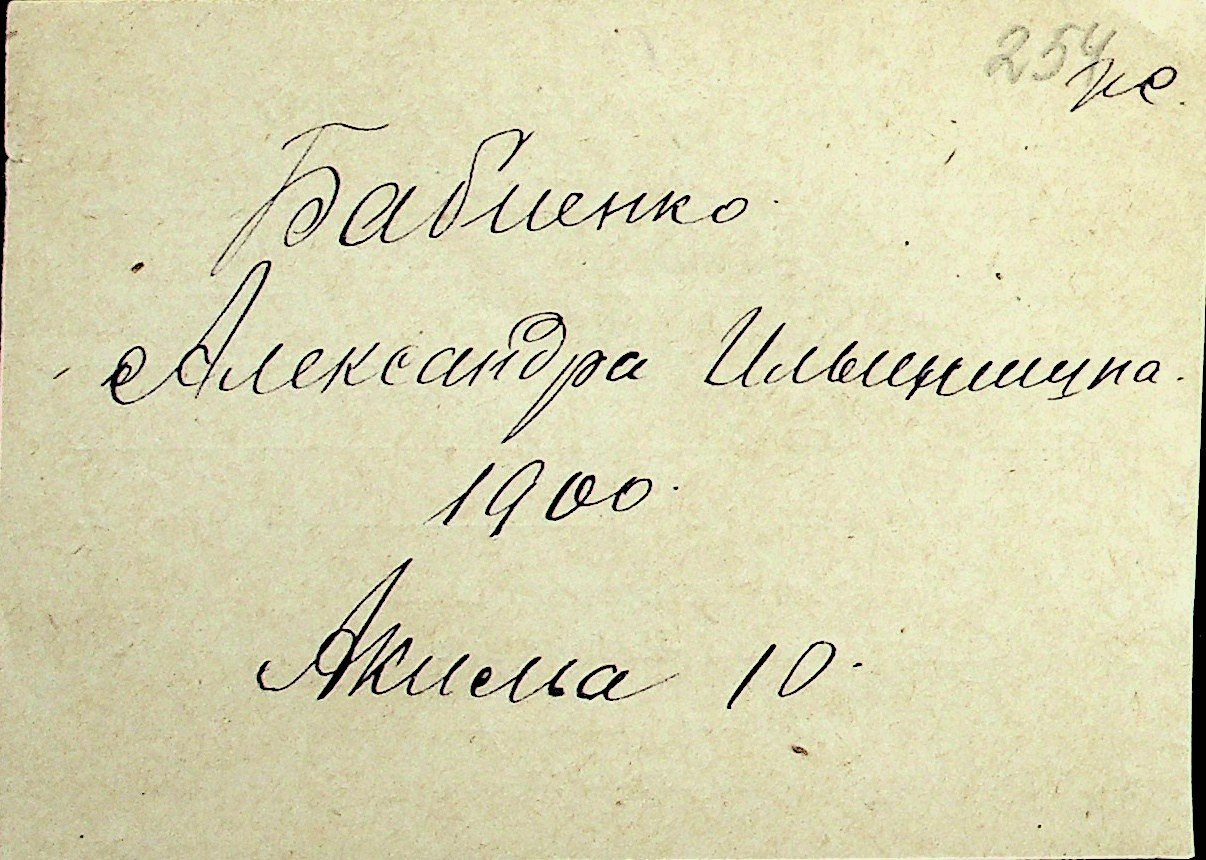 254
Бабиенко
Александра Ильинишна.
1900
Акима 10.